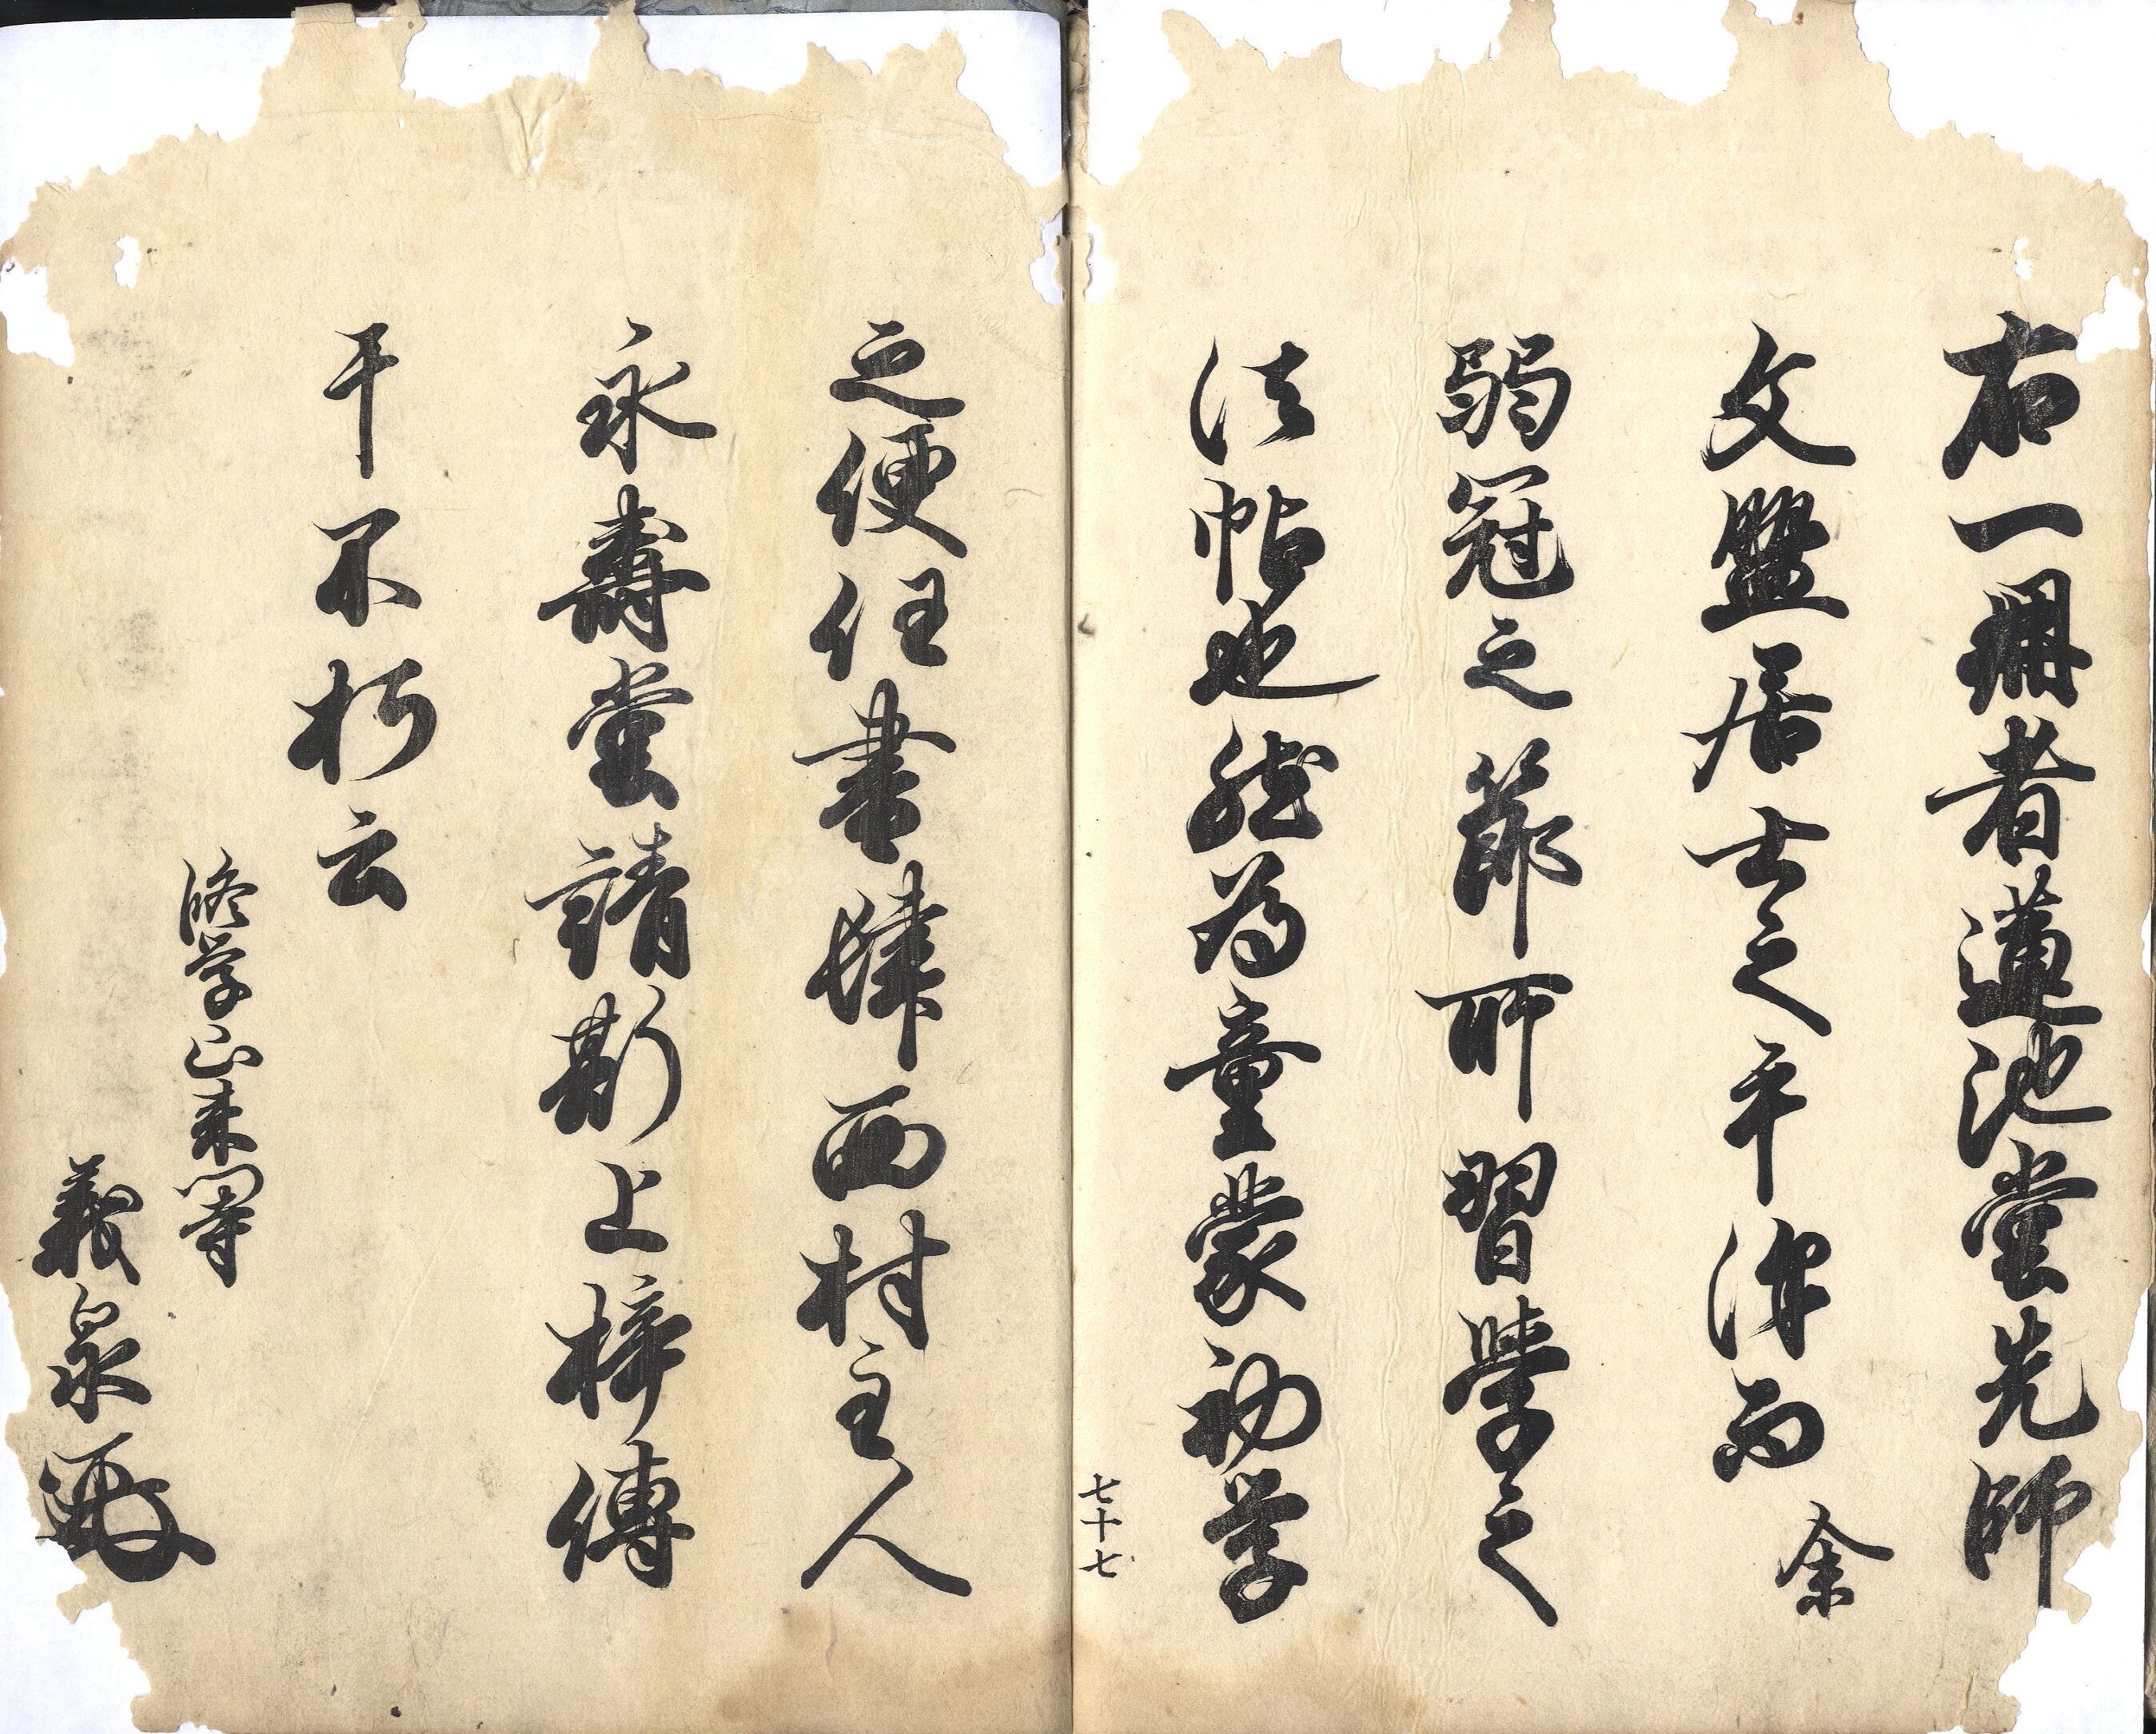 右一冊者蓮池堂先師
文盤居士之平津而余
弱冠之節所習學之
法帖也然為童蒙初学
七十七
之便任書肆西村主人
永壽堂請斯上梓傳
干不朽云
脩学山来
義泉